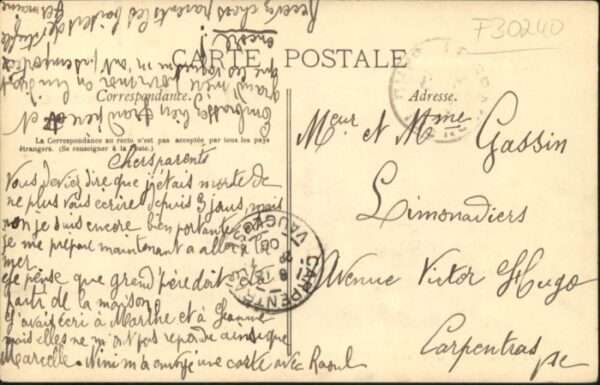 CARTE POSTALE
F30240
Correspondance.
Adresse.
La Correspondance au recto n'est pas acceptée par tous les pays
étrangers. (Se renseigner à la Poste.)
Chers parents
Vous deviez dire que j'étais morte de
ne plus vous ecrire depuis 3 jours, mais
non je suis encore bien portante
je me prépare maintenant a aller à la
mer.
je pense que grand'père doit
parti de la maison
J'avais écri à Marthe et à Jeanne
mais elles ne m'ont pas repondu ainsi que
Marcelle. Nini m'a envoyé une carte avec Raoul
Embrassez bien grand père et
grand mère
encore!
Recevez chers parents les baisers de
Germaine
Meur et Mme Gassin
Limonadiers
Avenue Victor Hugo
Carpentras
CARPENTRAS
VAUCLUSE